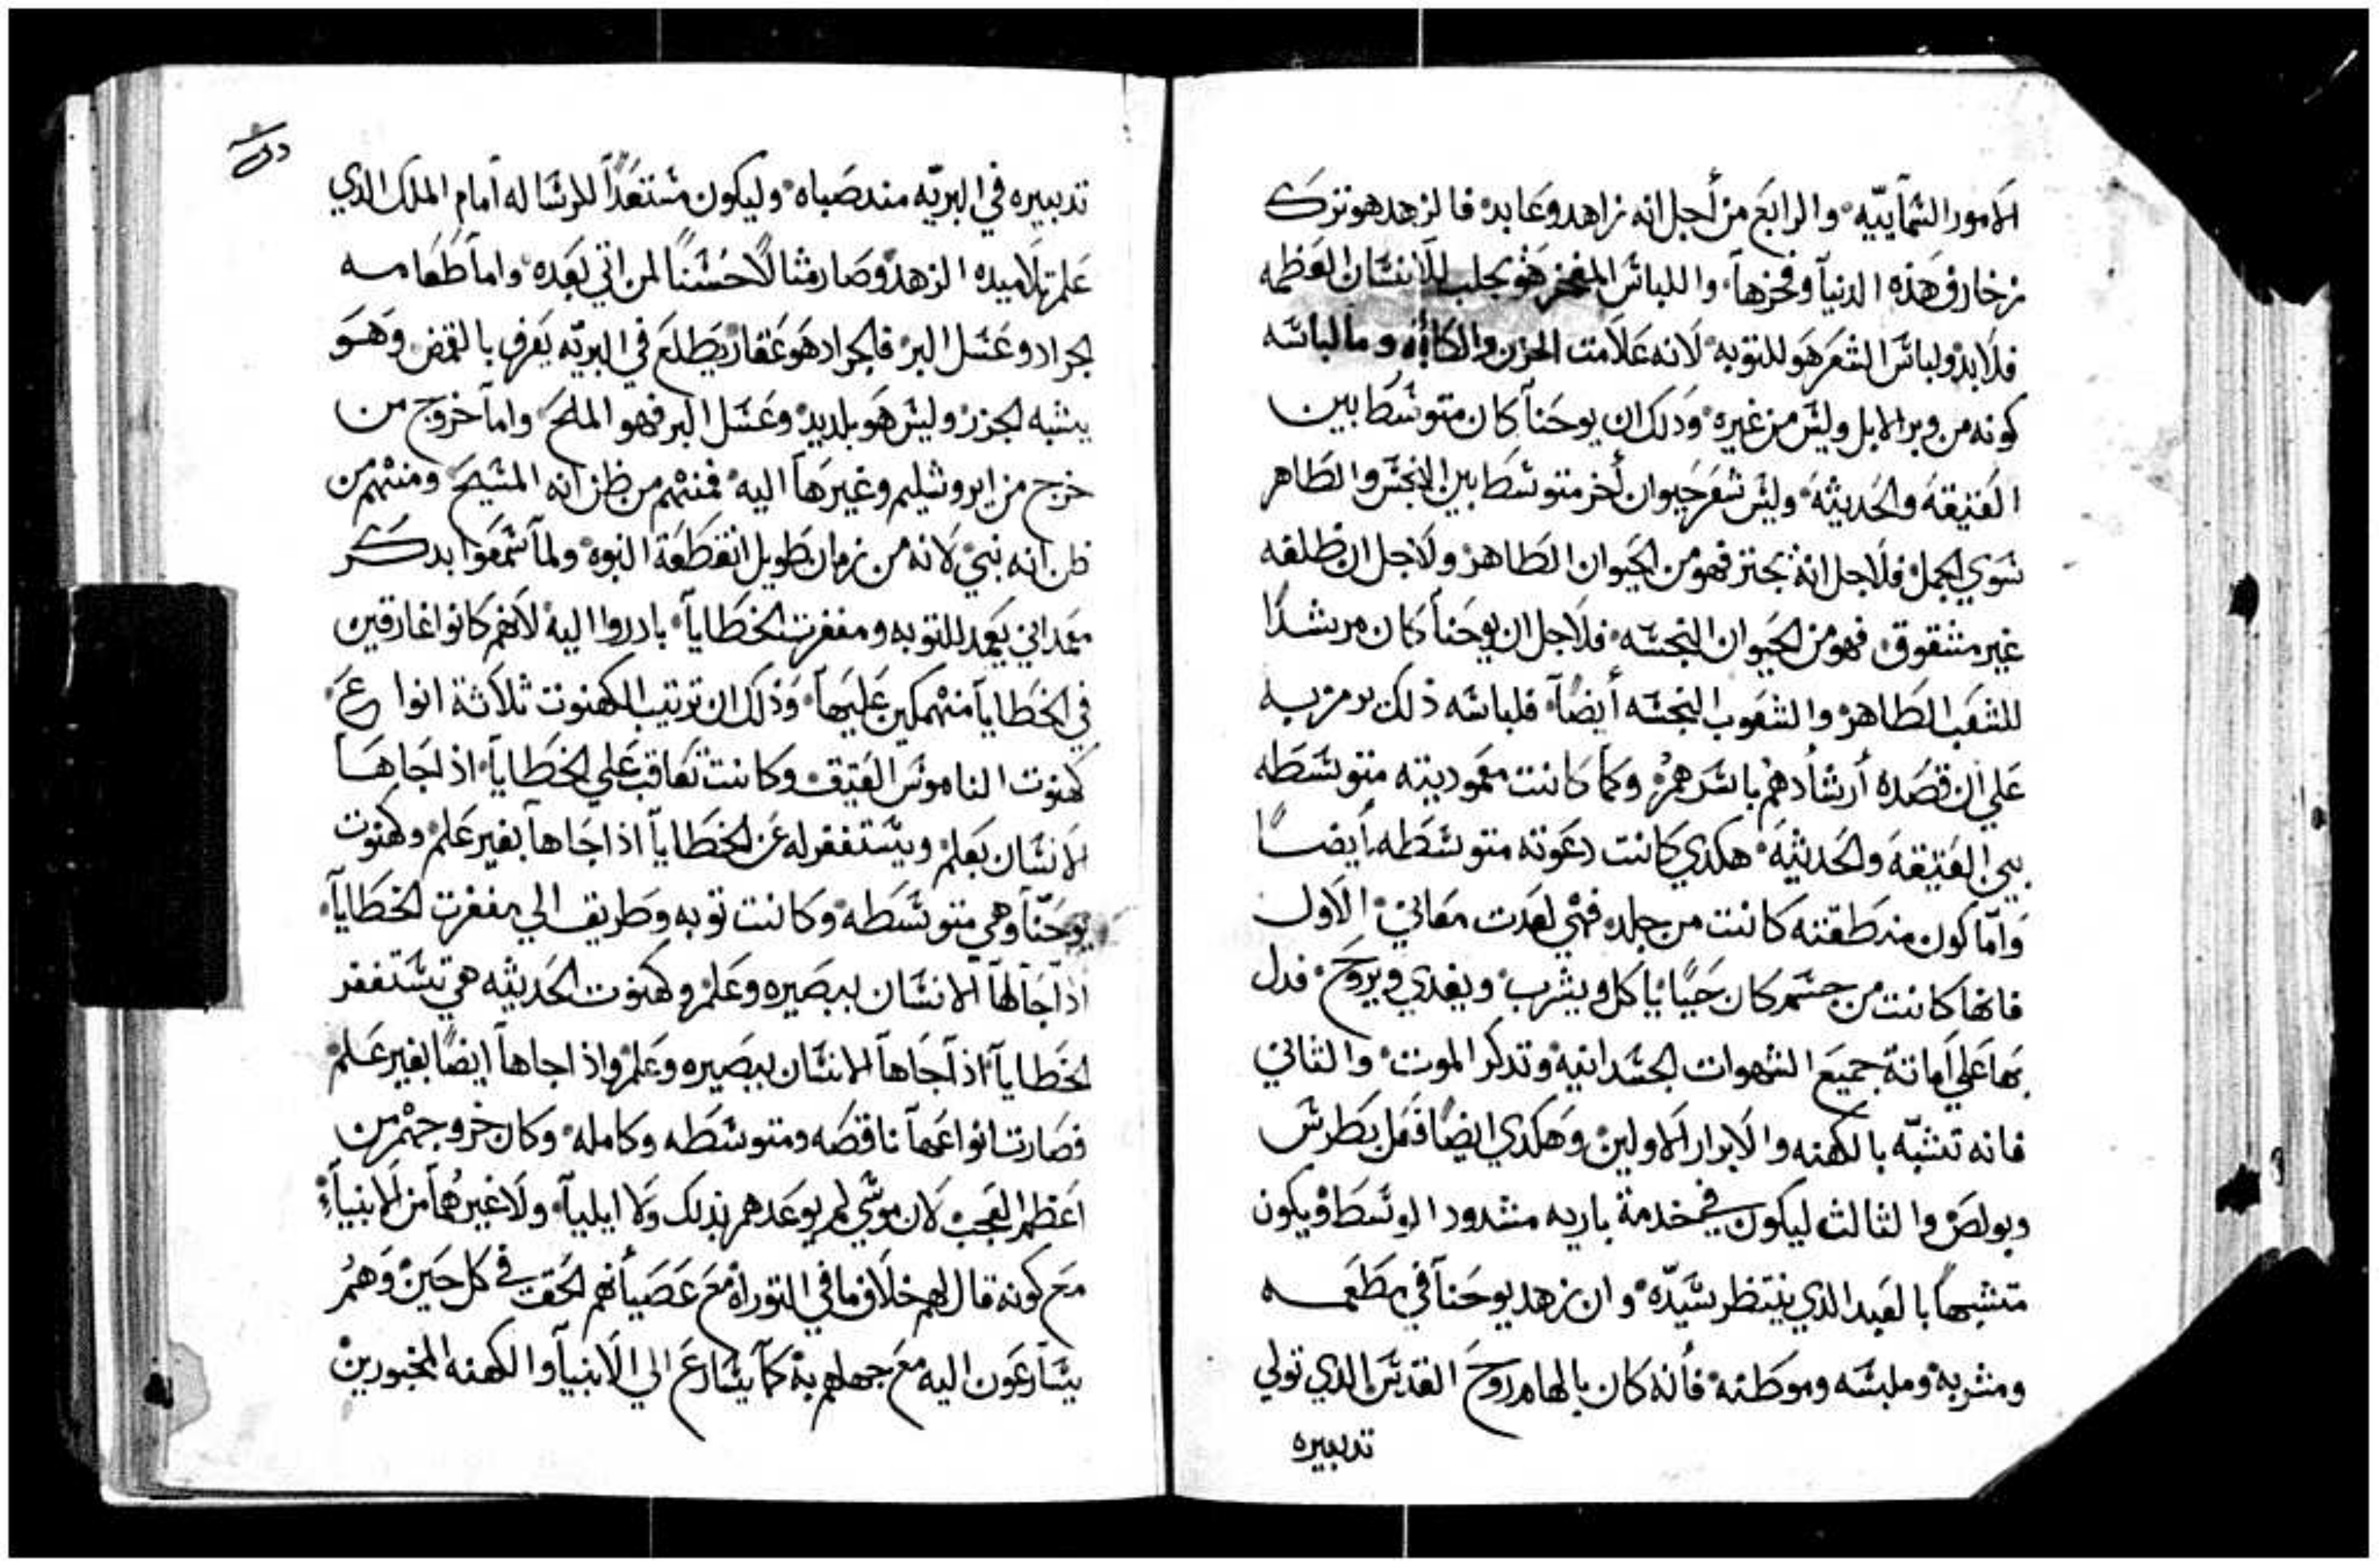 الامور السمآييّه والرابع من أجل انه زاهد وعابد فالزهد هو ترك
زخارف هذه الدنيآ وفخرها واللباس المفخر هو يجلب للانسان العظمه
فلابد ولباس الشعر هو للتوبه لانه علامت الحزن والكآبه وما لباسه
كونه من وبر الابل وليس من غيره وذلك ان يوحنآ كان متوسطا بين
العتيقه والحديثه وليس شعر حيوان أخر متوسطا بين النجس والطاهر
سوي الجمل فلاجل انه يجتز فهو من الحيوان الطاهر ولاجل ان ظلفه
غير مشقوق فهو من الحيوان النجسه فلاجل ان يوحنآ كان مرشدًا
للشعب الطاهر والشعوب النجسه أيضًا فلباسه ذلك يرمز به
علي ان قصده أرشادهم باسرهم وكما كانت معموديته متوسطه
بين العتيقه والحديثه هكدي كانت دعوته متوسطه أيضًا
وأمّا كون منطقته كانت من جلد فهي لعدت معاني الاول
فانها كانت من جسم كان حيًا ياكل ويشرب ويغدي ويروح فدل
بها علي اماتة جميع الشهوات الجسدانيه وتدكر الموت والثاني
فانه تشبّه بالكهنه والابرار الاولين وهكدي ايضًا فعل بطرس
وبولص والثالث ليكون في خدمة باريه مشدود الوسط ويكون
متشبهًا بالعبد الذي ينتظر سيّده وان زهد يوحنآ في مطعمه
ومشربه وملبسه وموطنه فأنه كان بالهام روح القدس الدي تولي
تدبيره
تدبيره في البريّه مند صباه وليكون مستعدًا للرساله أمام الملك الدي
علم تلاميده الزهد وصار مثالًا حسنًا لمن اتي بعده وامآ طعامه
الجراد وعسل البر فالجراد هو عقار يطلع في البريّه يعرف بالقمص وهو
يشبه الجزر وليس هو بلديد وعسل البر فهو الملح وامآ خروج من
خرج من ايروشليم وغيرهآ اليه فمنهم من ظن انه المسيح ومنهم من
ظن انه نبي لانه من زمان طويل انقطعة النبوه ولمآ سمعوا بدكر
معمداني يعمد للتوبه ومغفرت الخطايآ بادروا اليه لانهم كانوا غارقين
في الخطايآ منهمكين عليهآ وذلك ان ترتيب الكهنوت ثلاثة انواع
كهنوت الناموس العتيق وكانت تعاقب علي الخطايآ اذ اجاهآ
الانسان بعلم ويستغفر له عن الخطايآ اذا جاهآ بغير علم وكهنوت
يوحنّآ وهي متوسطه وكانت توبه وطريق الي مغفرت الخطايآ
اذآ جآلهآ الانسان ببصيره وعلم وكهنوت الحديثه هي تستغفر
الخطايآ اذآ جاهآ الانسان ببصيره وعلم واذا جاهآ ايضًا بغير علم
فصارت انواعهآ ناقصه ومتوسطه وكامله وكان خروجهم من
اعظم العجب لان موسي لم يوعدهم بدلك ولا ايليآ ولا غيرهمآ من الانبيآء
مع كونه قال لهم خلاف ما في التوراة مع عصيآنهم الحق في كل حين وهم
يسارعون اليه مع جهلهم به كمآ يسارع الي الانبيآ والكهنه المخبورين